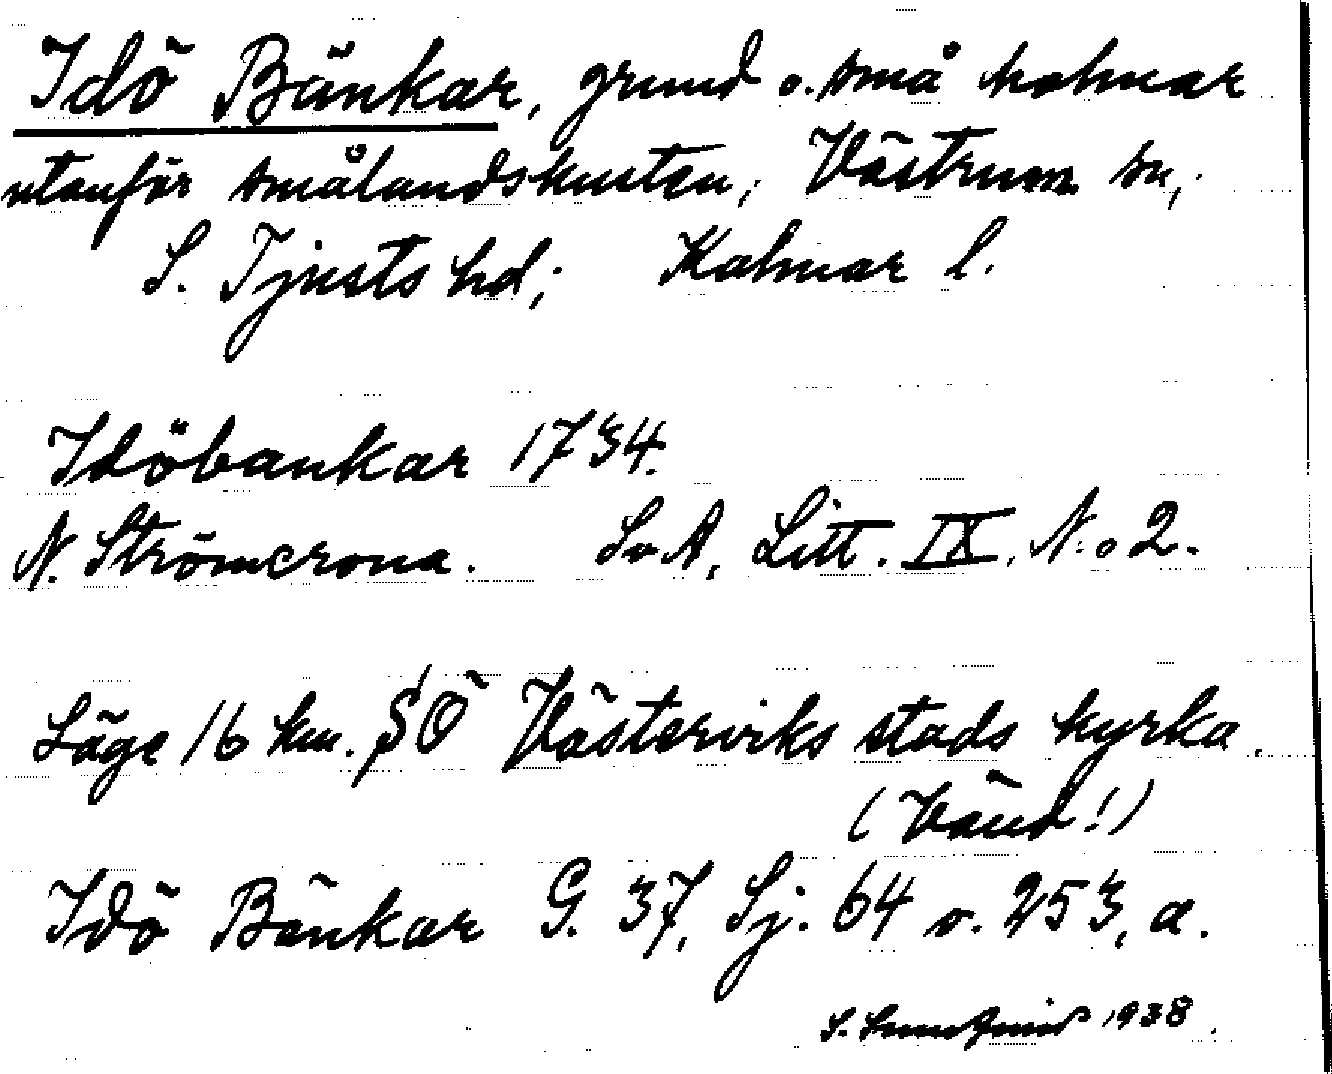 Idö Bänkar, grund o. små holmar
utanför smålandskusten, Västrum sn,
S. Tjusts hd; Kalmar l.
Idöbankar 1734.
N. Strömcrona. SvA, Litt. IX. N.o 2.
Läge 16 km. SÖ Västerviks stads kyrka.
(Vänd!)
Idö Bänkar G. 37, Sj. 64 o. 253, a.
S. 1938.